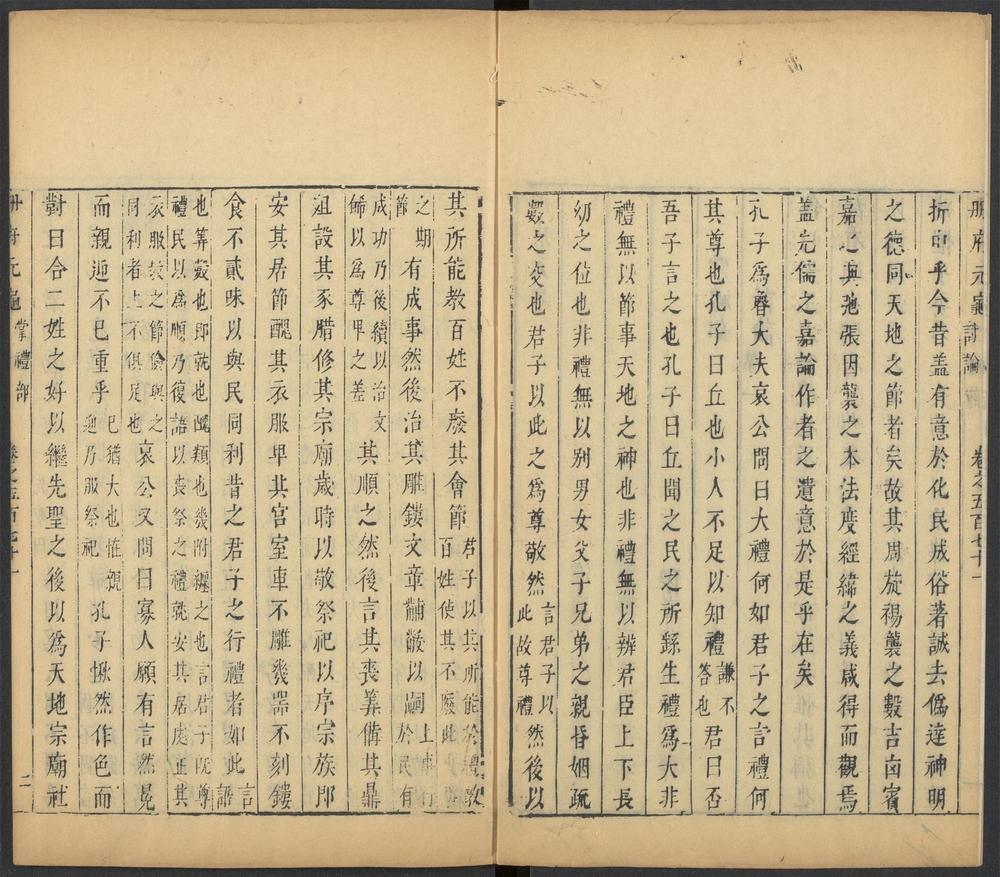 冊府元龜 討論 卷之五百七十一
折中乎今昔蓋有意於化民成俗著誠去僞達神明
之德同天地之節者矣故其周旋裼襲之數吉凶賓
嘉之典弛張因襲之本法度經緯之義咸得而觀焉
蓋先儒之嘉論作者之遺意於是乎在矣
孔子爲魯大夫哀公問曰大禮何如君子之言禮何
其尊也孔子曰丘也小人不足以知禮謙不答也君曰否
吾子言之也孔子曰丘聞之民之所繇生禮爲大非
禮無以節事天地之神也非禮無以辨君臣上下長
幼之位也非禮無以别男女父子兄弟之親昏姻疏
數之交也君子以此之爲尊敬然言君子以此故尊禮然後以
其所能教百姓不廢其會節君子以其所能於禮教百姓使其不廢此
之期節有成事然後治其雕鏤文章黼黻以嗣上事行於民有
成功乃後續以治文飾以爲尊卑之差其順之然後言其喪筭備其鼎
俎設其豕腊修其宗廟歲時以敬祭祀以序宗族即
安其居節醜其衣服卑其宮室車不雕幾器不刻鏤
食不貳味以與民同利昔之君子之行禮者如此言語
也筭數也即就也醜類也幾附纏之也言君子旣尊禮民以爲順乃復語以喪祭之禮就安其居處正其
衣服敎之節儉與之同利者上不俱足也哀公又問曰寡人願有言然冕
而親迎不已重乎已猶大也怪親迎乃服祭祀孔子愀然作色而
對曰合二姓之好以繼先聖之後以爲天地宗廟社
冊府元龜 掌禮部 卷之五百七十一 二